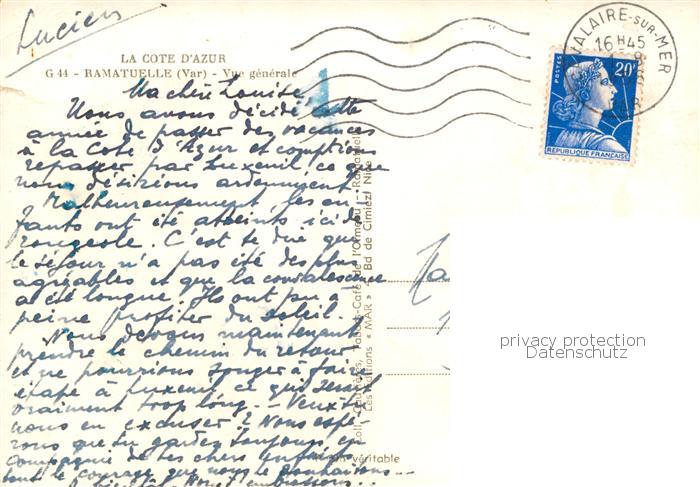 Lucien
LA COTE D'AZUR
G 44 - RAMATUELLE (Var) - Vue générale
Ma chère Louise,
Nous avons décidé cette
année de passer des vacances
à la Cote d'Azur et comptions
repasser par Luxeuil, ce que
nous désirions ardemment.
Malheureusement, les en-
fants ont été atteints ici de
rougeole. C'est te dire que
le séjour n'a pas été des plus
agréables et que la convalescence
a été longue. Ils ont pu à
peine profiter du soleil.
Nous devons maintenant
prendre le chemin du retour
et ne pourrions songer à faire
étape à Luxeuil ce qui serait
vraiment trop long. - Veux-tu
nous en excuser ? Nous espé-
rons que tu gardes toujours, en
compagnie de tes chers enfants
tout le courage que nous te souhaitons...
Nous t'embrassons..
Tabacs-Café de l'Ormeau - Ramatuelle
Les Editions « MAR » Bd de Cimiez, Nice
véritable
ALAIRE-SUR-MER
16 H 45
VAR
POSTES
20F
REPUBLIQUE FRANÇAISE
privacy protection
Datenschutz